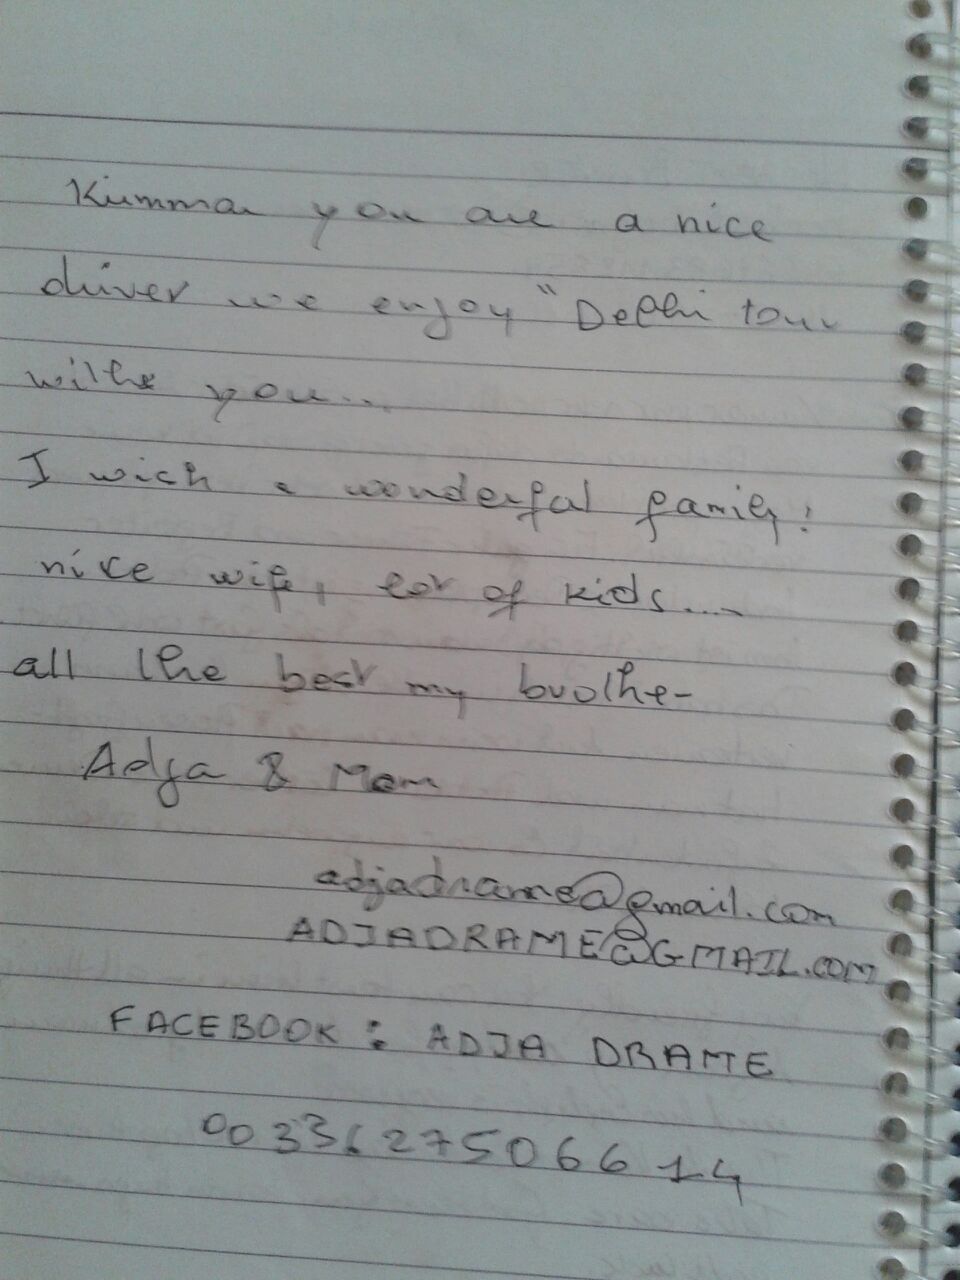 Kummar you are a nice
driver we enjoy "Delhi tour
withe you...
I wich a wonderful family!
nice wife, lot of kids....
all the best my brother
Adja & Mam
adjadrame@gmail.com
ADJADRAME@GMAIL.COM
FACEBOOK : ADJA DRAME
0033627506614